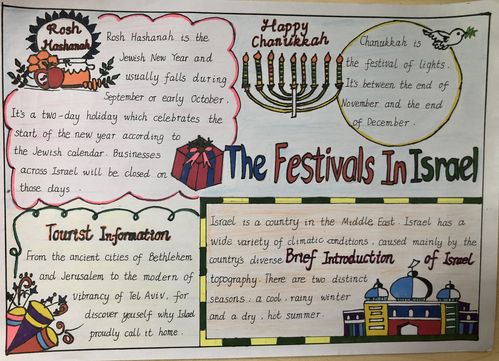 Rosh
Hashanah
Rosh Hashanah is the
Jewish New Year and
usually falls during
September or early October.
It's a two-day holiday which celebrates the
start of the new year according to
the Jewish calendar. Businesses
across Israel will be closed on
those days.
Happy
Chanukkah
Chanukkah is
the festival of lights.
It's between the end of
November and the end
of December.
The Festivals In Israel
Tourist Information
From the ancient cities of Bethlehem
and Jerusalem to the modern of
vibrancy of Tel Aviv, for
discover youself why Islael
proudly call it home.
Israel is a country in the Middle East. Israel has a
wide variety of climatic conditions, caused mainly by the
country's diverse
Brief Introduction of Israel
topography. There are two distinct
seasons, a cool, rainy winter
and a dry, hot summer.